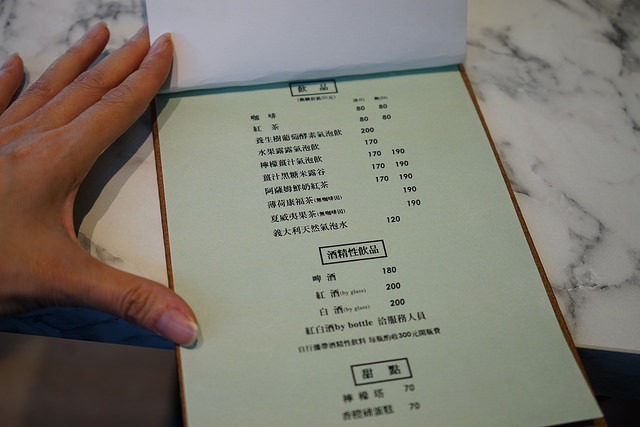 飲 品
咖 啡 80 80
紅 茶 80 80
養生樹葡萄酵素氣泡飲 200
水果露露氣泡飲 170
檸檬薑汁氣泡飲 170 190
薑汁黑糖米露谷 170 190
阿薩姆鮮奶紅茶 170 190
薄荷康福茶(無咖啡因) 190
夏威夷果茶(無咖啡因) 190
義大利天然氣泡水 120
酒精性飲品
啤 酒 180
紅 酒(by glass) 200
白 酒(by glass) 200
紅白酒by bottle 洽服務人員
自行攜帶酒精性飲料 每瓶酌收300元開瓶費
甜 點
檸 檬 塔 70
香橙磅蛋糕 70